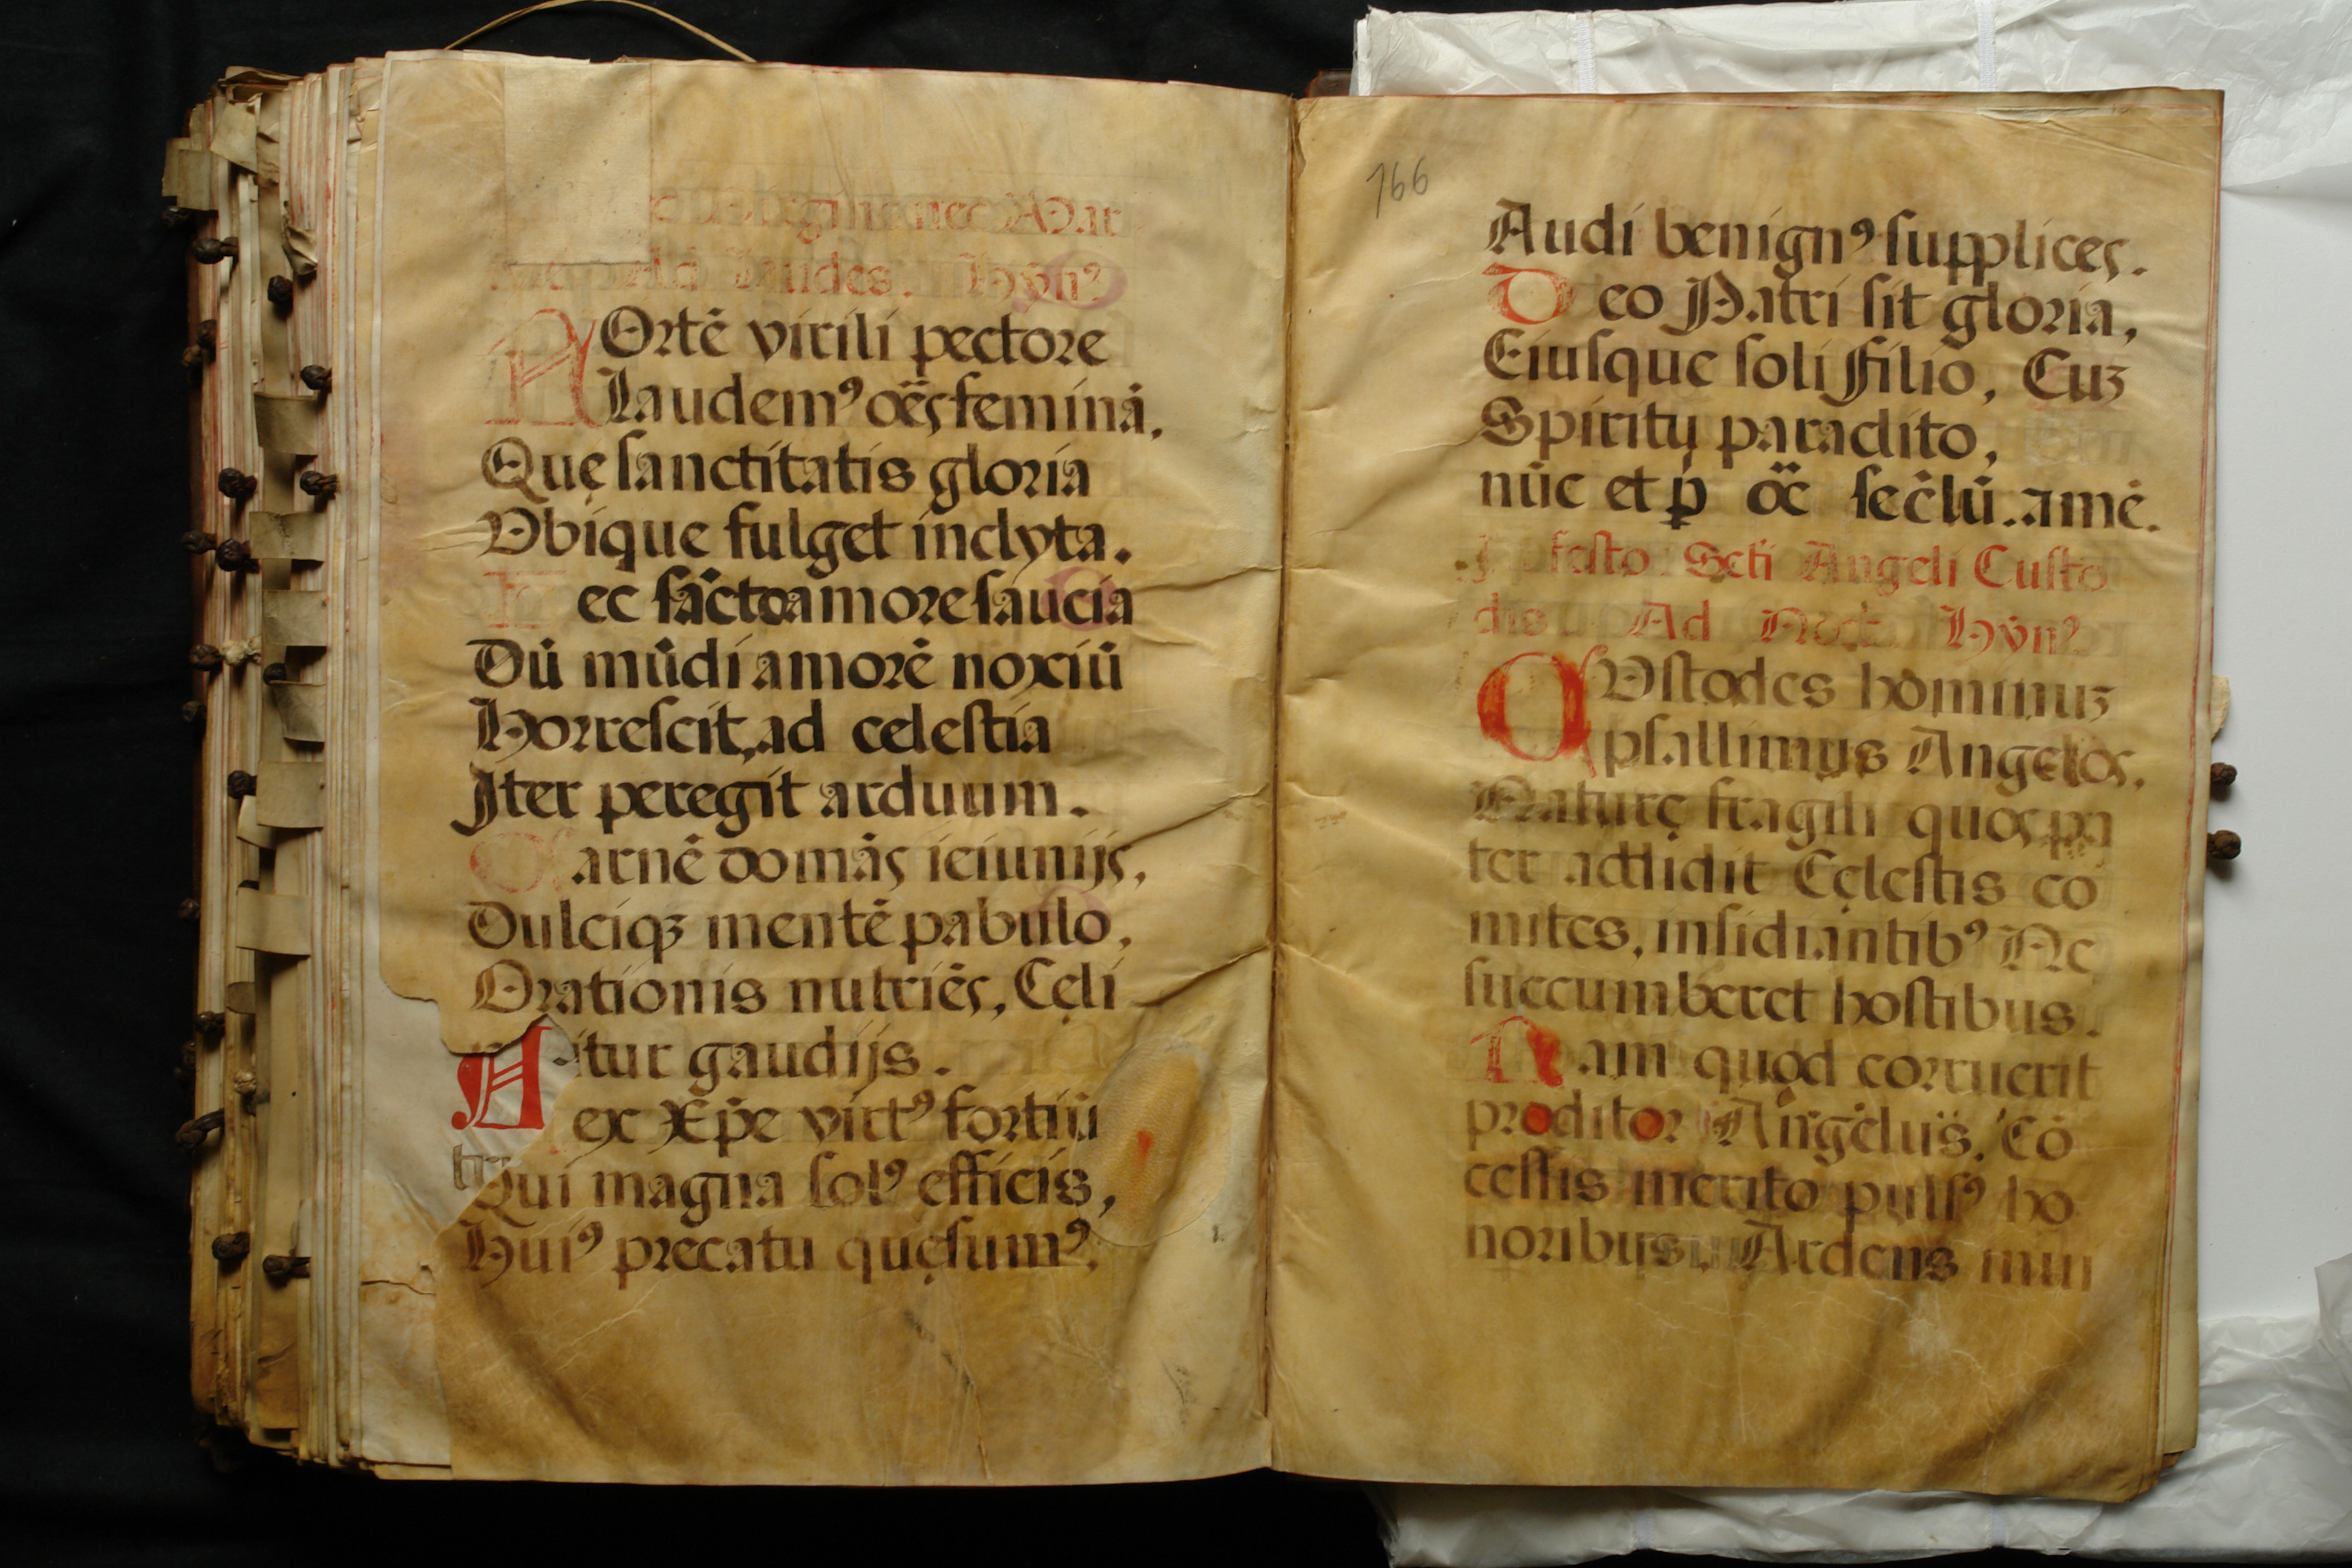 nec Mar
Ad Laudes. Hỹn⁹
FOrtē virili pectore
Laudem⁹ oēs feminā.
Quę sanctitatis gloria
Vbique fulget inclyta.
H ec sācto amore saucia
Dū mūdi amorē noxiū
Horrescit, ad celestia
Iter peregit arduum.
C arnē domās ieiunijs,
Dulciqꝫ mentē pabulo,
Orationis nutriēs, Cęli
itur gaudijs.
R ex Xp̄e virt⁹ fortiū
Qui magna sol⁹ efficis,
Hui⁹ precatu quęsum⁹,
166
Audi benign⁹ supplices.
D eo Patri sit gloria,
Eiusque soli Filio, Cuꝫ
Spiritu paraclito,
nūc et ꝑ oē seclū. amē.
In festo Scti Angeli Custo
dis Ad Noct Hỹn⁹
CVstodes hominuꝫ
psallimus Angelos,
Naturę fragili quos pa
ter addidit Cęlestis co
mites, insidiantib⁹ Ne
succumberet hostibus.
N am quod corruerit
proditor Angelus, Cō
cessis merito puls⁹ ho
noribus, Ardens inui